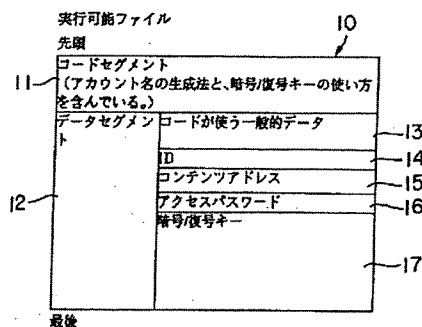 実行可能ファイル
先頭
10
コードセグメント
11
(アカウント名の生成法と、暗号/復号キーの使い方
を含んでいる。)
データセグメン
ト
コードが使う一般的データ
13
ID
14
コンテンツアドレス
15
アクセスパスワード
16
12
暗号/復号キー
17
最後